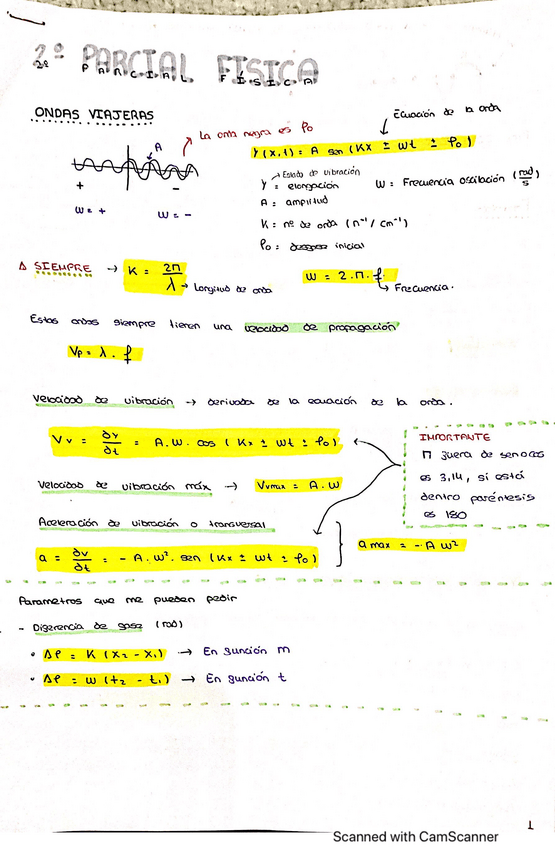 2º PARCIAL FISICA
2º PARCIAL FÍSICA
ONDAS VIAJERAS
La onda negra es φ₀
Ecuación de la onda
A
Y(x,t) = A sen (Kx ± wt ± φ₀)
+ -
w = + w = -
Estado de vibración
Y = elongación
w = Frecuencia oscilación (rad/s)
A = amplitud
K = nº de onda (m⁻¹ / cm⁻¹)
φ₀ = desfase inicial
Δ SIEMPRE → K = 2π/λ → Longitud de onda
w = 2.π.f → Frecuencia.
Estas ondas siempre tienen una velocidad de propagación
Vp = λ . f
Velocidad de vibración → derivada de la ecuación de la onda.
Vv = ∂y/∂t = A.w. cos (Kx ± wt ± φ₀)
IMPORTANTE
π fuera de senocos
es 3,14, si está
dentro paréntesis
es 180
Velocidad de vibración máx → Vvmax = A.w
Aceleración de vibración o transversal
a = ∂v/∂t = - A.w². sen (Kx ± wt ± φ₀)
a max = - A w²
Parametros que me pueden pedir
- Diferencia de fase (rad)
• Δφ = K (x₂ - x₁) → En función m
• Δφ = w (t₂ - t₁) → En función t
1
Scanned with CamScanner